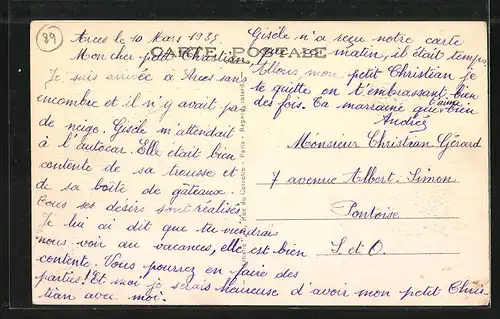 89
Arces le 10 Mars 1935
CARTE POSTALE
Mon cher petit Christian,
Je suis arrivée à Arces sans
encombre et il n'y avait pas
de neige. Gisèle m'attendait
à l'autocar. Elle était bien
contente de sa trousse et
de sa boîte de gâteaux.
Tous ses désirs sont réalisés
Je lui ai dit que tu viendrais
nous voir au vacances, elle est bien
contente. Vous pourrez en faire des
parties! Et moi je serais heureuse d'avoir mon petit Chris
tian avec moi.
Gisèle n'a reçu notre carte
que ce matin, il était temps.
Allons mon petit Christian je
te quitte en t'embrassant bien
des fois. Ta marraine qui t'aime bien
Andrée
Monsieur Christian Gérard
7 avenue Albert-Simon
Pontoise
S et O.
Paris